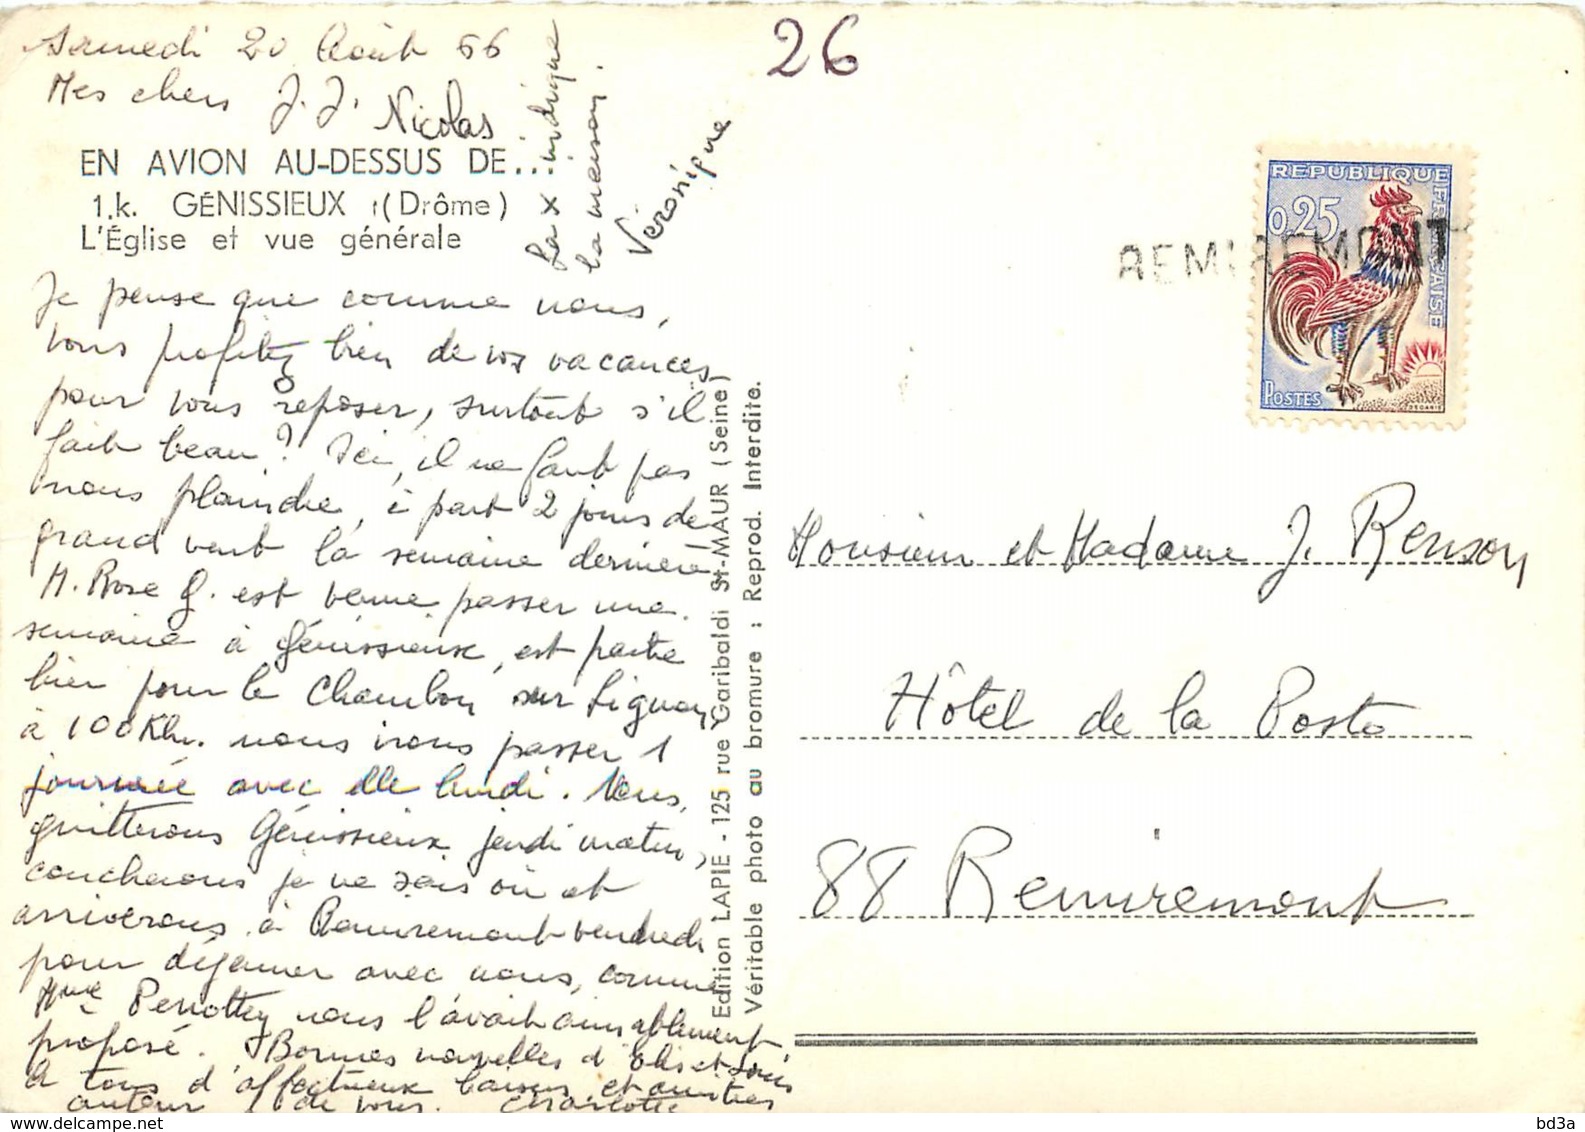 Samedi 20 Août 66
Mes chers J. J. Nicolas
EN AVION AU-DESSUS DE...
1.k. GÉNISSIEUX (Drôme)
L'Église et vue générale
La x indique
la maison.
Véronique
Je pense que comme nous,
vous profitez bien de vos vacances
pour vous reposer, surtout s'il
fait beau? Ici, il ne faut pas
nous plaindre, à part 2 jours de
grand vent la semaine dernière
M. Rose G. est venue passer une
semaine à Génissieux, est partie
hier pour le Chambon sur Lignon,
à 100 Km. nous irons passer 1
journée avec elle lundi. Nous,
quitterons Génissieux jeudi matin,
coucherons je ne sais où et
arriverons à Remiremont vendredi
pour déjeuner avec nous, comme
Mme Perrottey nous l'avait aimablement
proposé. Bonnes nouvelles d'Elis et Loïs
A tous d'affectueux baisers et amitiés
autour de vous. Charlotte
Edition LAPIE - 125 rue Garibaldi St-MAUR (Seine)
Véritable photo au bromure : Reprod. Interdite.
26
REPUBLIQUE FRANÇAISE
0,25
POSTES
DECARIS
REMIREMONT
Monsieur et Madame J. Renson
Hôtel de la Poste
88 Remiremont
bd3a